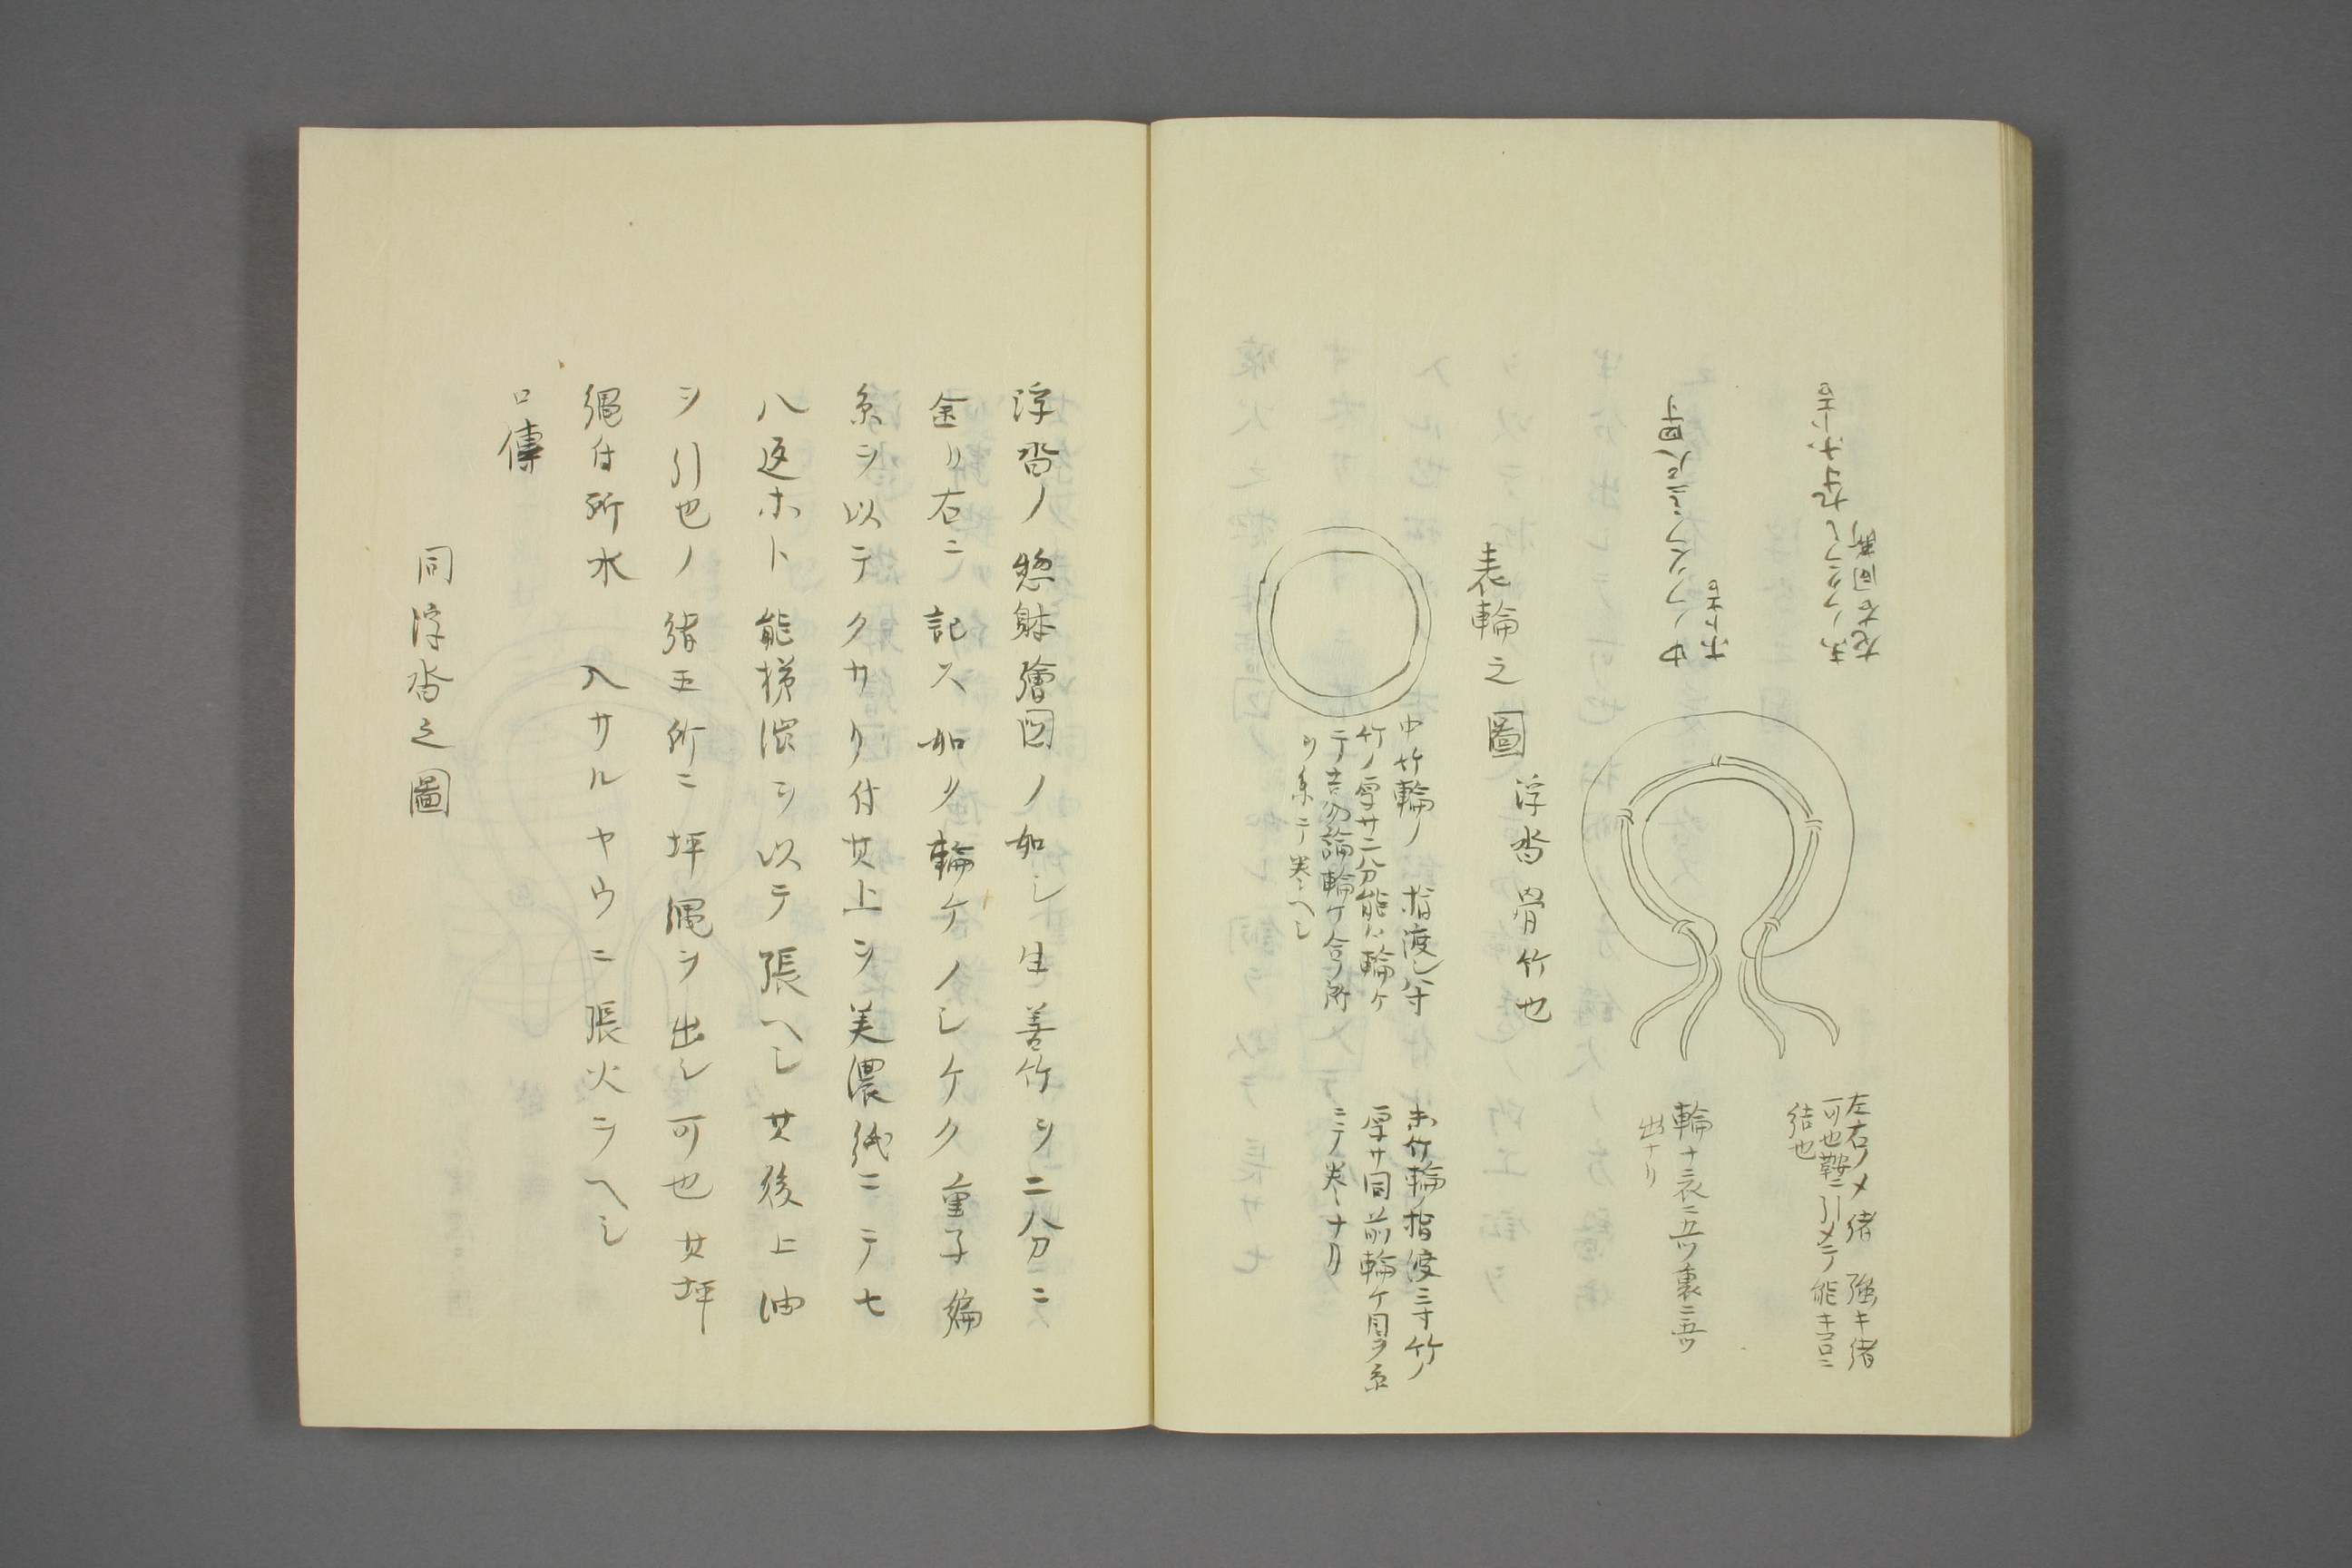 左右ノメ緒 強キ緒
可也鞍ニ引メテ能キコロニ
結也
輪ナ表ニ五ツ裏ニ五ツ
出ナリ
表輪之圖
浮沓骨竹也
中竹輪ノ 指渡シ八寸
竹ノ厚サ二分能ハ輪ケ
テ吉勿論輪ケ合ノ所
リ糸ニテ巻ヘシ
末竹輪ノ指渡三寸竹ノ
厚サ同前輪ケ目ヲ糸
ニテ巻ナリ
浮沓ノ惣躰繪図ノ如シ生善竹ヲ二分ニ
右ニ記ス如ク輪ケノシケク重子編
糸ヲ以テクサリ付其上ヲ美濃紙ニテ七
八返ホト能澁ヲ以テ張ヘシ其後上油
ヲ引也ノ緒五所ニ坪縄ヲ出シ可也其坪
縄付所水 入サルヤウニ張火ヲヘシ
口傳
同浮沓之圖